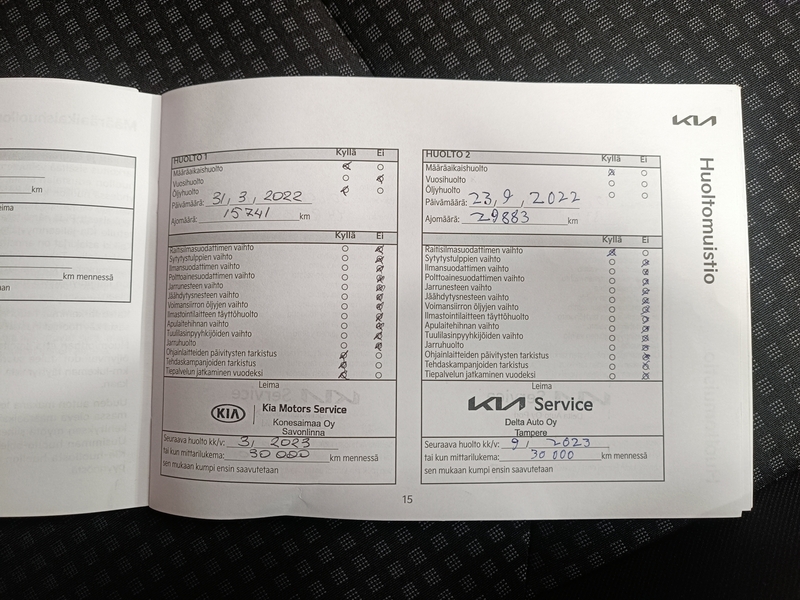 km
km mennessä
KIA
Huoltomuistio
HUOLTO 1 Kyllä Ei
Määräaikaishuolto
Vuosihuolto
Öljyhuolto
Päivämäärä: 31, 3, 2022
Ajomäärä: 15741 km
Kyllä Ei
Raitisilmasuodattimen vaihto
Sytytystulppien vaihto
Ilmansuodattimen vaihto
Polttoainesuodattimen vaihto
Jarrunesteen vaihto
Jäähdytysnesteen vaihto
Voimansiirron öljyjen vaihto
Ilmastointilaitteen täyttöhuolto
Apulaitehihnan vaihto
Tuulilasinpyyhkijöiden vaihto
Jarruhuolto
Ohjainlaitteiden päivitysten tarkistus
Tehdaskampanjoiden tarkistus
Tiepalvelun jatkaminen vuodeksi
Leima
KIA Kia Motors Service
Konesaimaa Oy
Savonlinna
Seuraava huolto kk/v: 3, 2023
tai kun mittarilukema: 30 000 km mennessä
sen mukaan kumpi ensin saavutetaan
HUOLTO 2 Kyllä Ei
Määräaikaishuolto
Vuosihuolto
Öljyhuolto
Päivämäärä: 23, 9, 2022
Ajomäärä: 29883 km
Kyllä Ei
Raitisilmasuodattimen vaihto
Sytytystulppien vaihto
Ilmansuodattimen vaihto
Polttoainesuodattimen vaihto
Jarrunesteen vaihto
Jäähdytysnesteen vaihto
Voimansiirron öljyjen vaihto
Ilmastointilaitteen täyttöhuolto
Apulaitehihnan vaihto
Tuulilasinpyyhkijöiden vaihto
Jarruhuolto
Ohjainlaitteiden päivitysten tarkistus
Tehdaskampanjoiden tarkistus
Tiepalvelun jatkaminen vuodeksi
Leima
KIA Service
Delta Auto Oy
Tampere
Seuraava huolto kk/v: 9, 2023
tai kun mittarilukema: 30 000 km mennessä
sen mukaan kumpi ensin saavutetaan
15